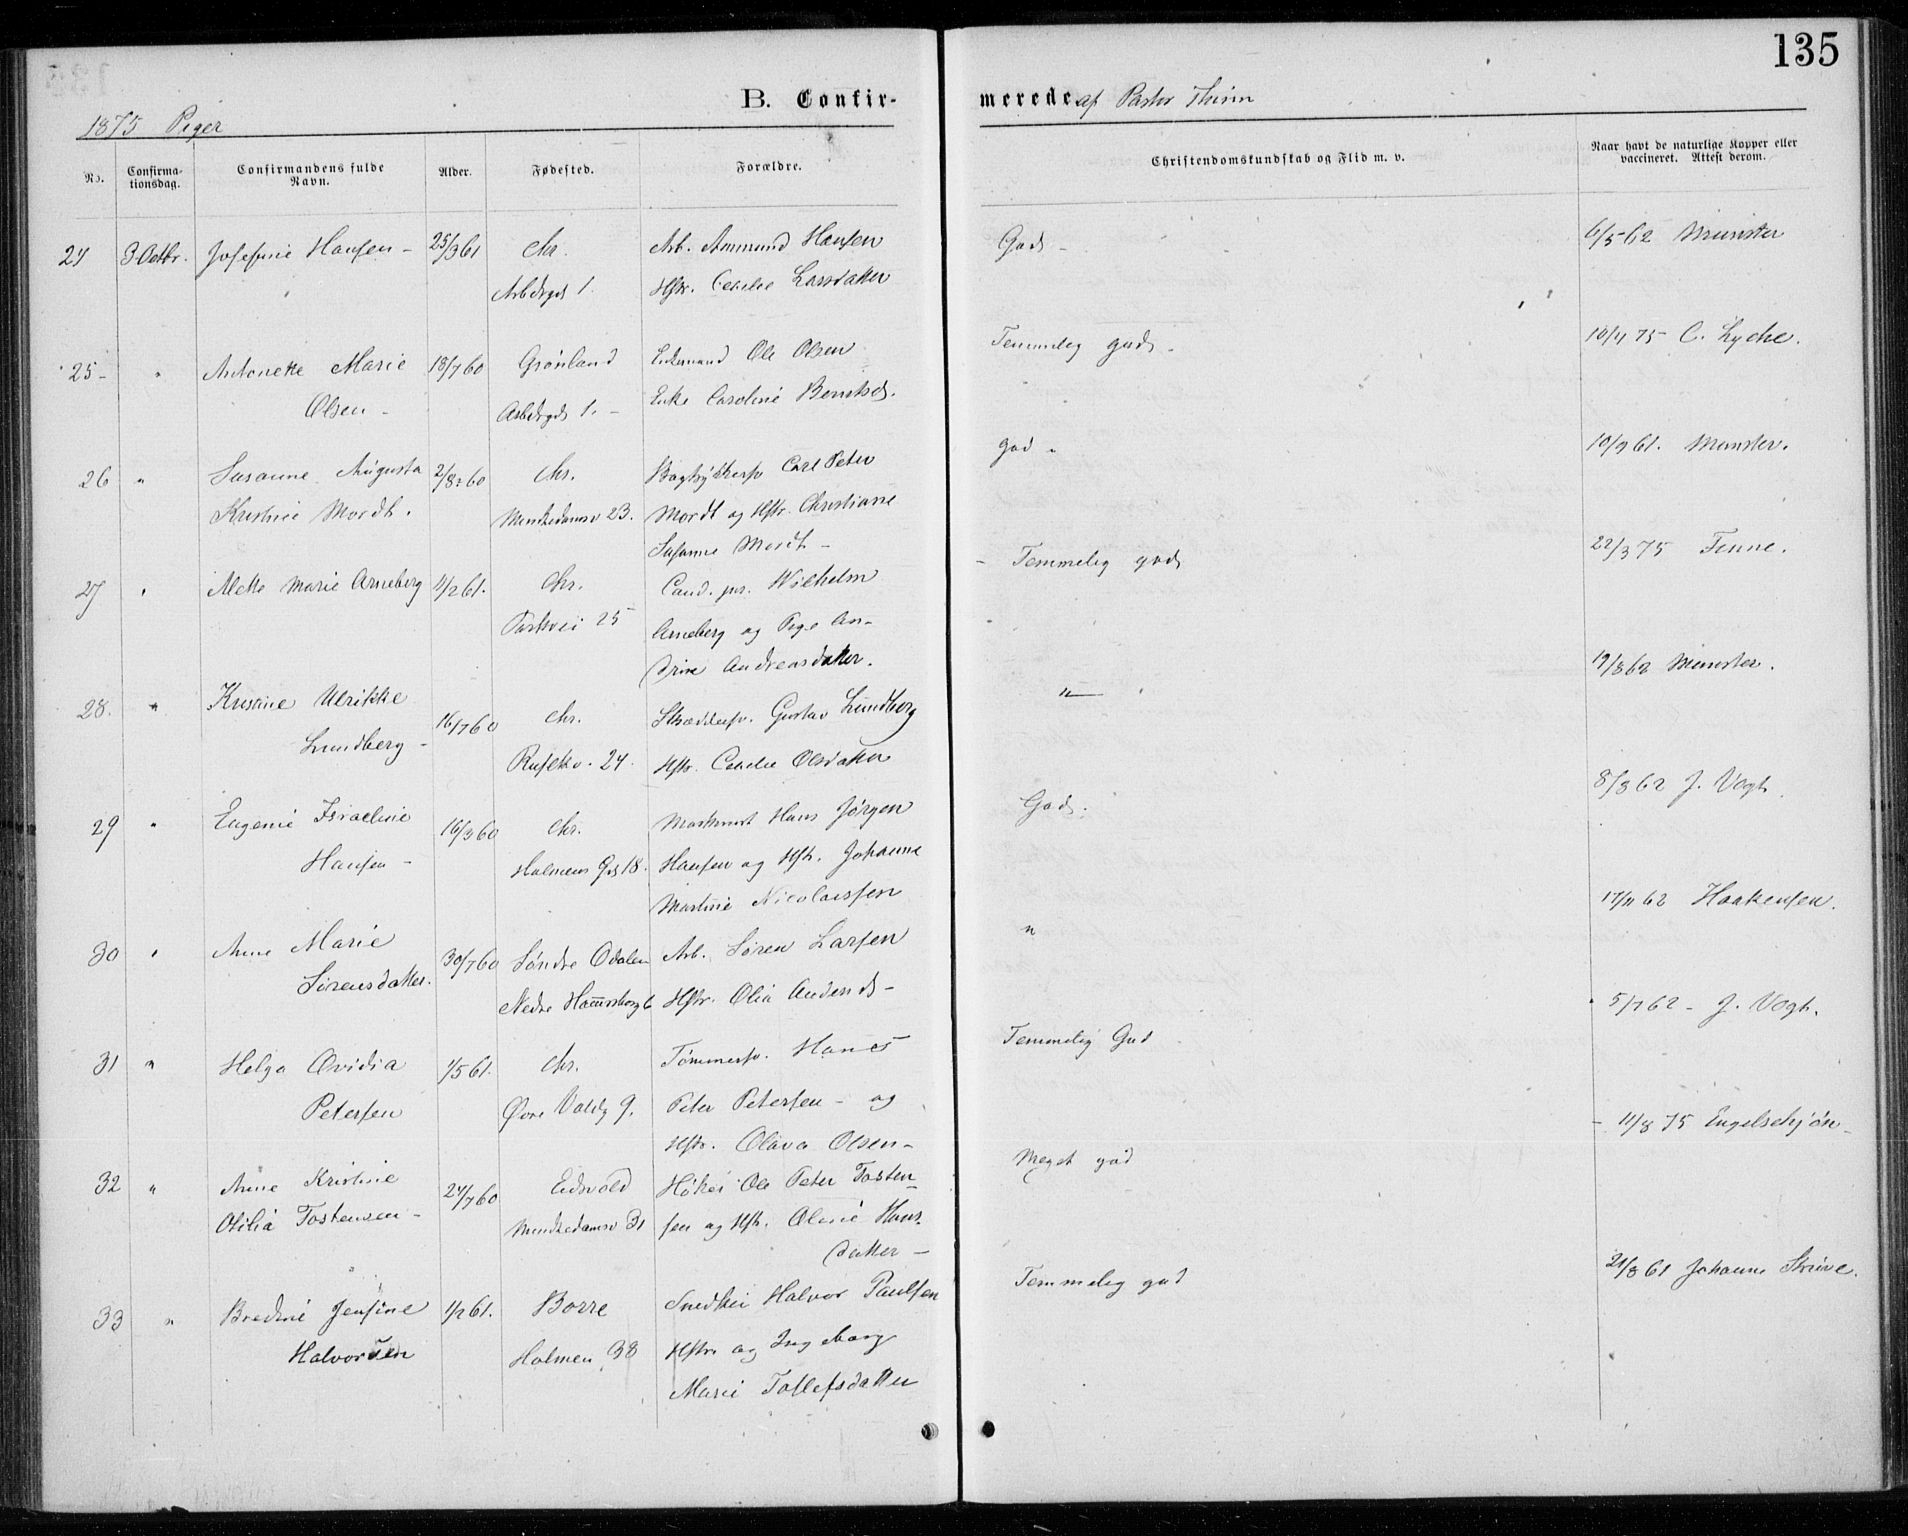 135
1875 Piger
B. Confir-
merede af Pastor Thinn
No.
Confirma-
tionsdag.
Confirmandens fulde
Navn.
Alder.
Fødested.
Forældre.
Christendomskundskab og Flid m. v.
Naar havt de naturlige Kopper eller
vaccineret. Attest derom.
24 3 Octbr. Josefine Hansen - 25/3 61 Chr. Arb. Ammund Hansen God - 6/5 62 Münster
Arbdrgd 1. Hstr. Cecilie Larsdatter
25 - " Antonette Marie 18/7 60 Grønland Enkemand Ole Olsen Temmelig god - 10/4 75 - C. Lyche.
Olsen - Arbdrgd 1. - Enke Caroline Berntsd.
26 " Susanne Augusta 2/8 60 Chr. Bogtrykkersv Carl Peter god " 10/9 61. Münster.
Kristine Mordt. Munkedamsv 23. Mordt og Hstr. Christiane
Susanne Mordt -
27 " Alette Marie Arneberg 11/2 61. Chr. Cand. jur. Wilhelm - Temmelig god 22/3 75 Finne.
Parkvei 25 Arneberg og Pige An-
drine Andreasdatter.
28. " Kristine Ulrikke 16/7 60 Chr. Skræddersv. Gustav Lundberg " 19/8 62 Münster.
Lundberg - Rusekv. 24. Hstr. Cecilie Olsdatter
29 " Eugenie Israeline 16/3 60 Chr. Maskinist Hans Jørgen God. 8/8 62 J. Vogt.
Hansen - Holmens Gd 18. Hansen og Hstr. Johanne
Martine Nicolaissen
30 " Anne Marie 30/7 60 Søndre Odalen Arb. Søren Larsen " 17/11 62 Haakensen.
Sørensdatter. Nedre Hammersborg 6 Hstr. Olia Andersd -
31 " Helga Ovidia 1/5 61. Chr. Tømmersv. Hans Temmelig God 5/7 62 - J. Vogt.
Petersen Øvre Voldg 9. Peter Petersen - og
Hstr. Olava Olsen -
32 " Anne Kristine 24/7 60 Eidsvold Høker Ole Peter Tosten- Meget god - 11/8 75 Engelschjøn -
Otilia Tostensen - Munkedamsv 31 sen og Hstr. Oline Hans-
datter -
33 " Bredine Jensine 1/2 61. Borre Snedker Halvor Paulsen Temmelig god 21/8 61 Johanne Skrive.
Halvorsen Holmen 38 Hstr og Ingeborg
Marie Tollefsdatter